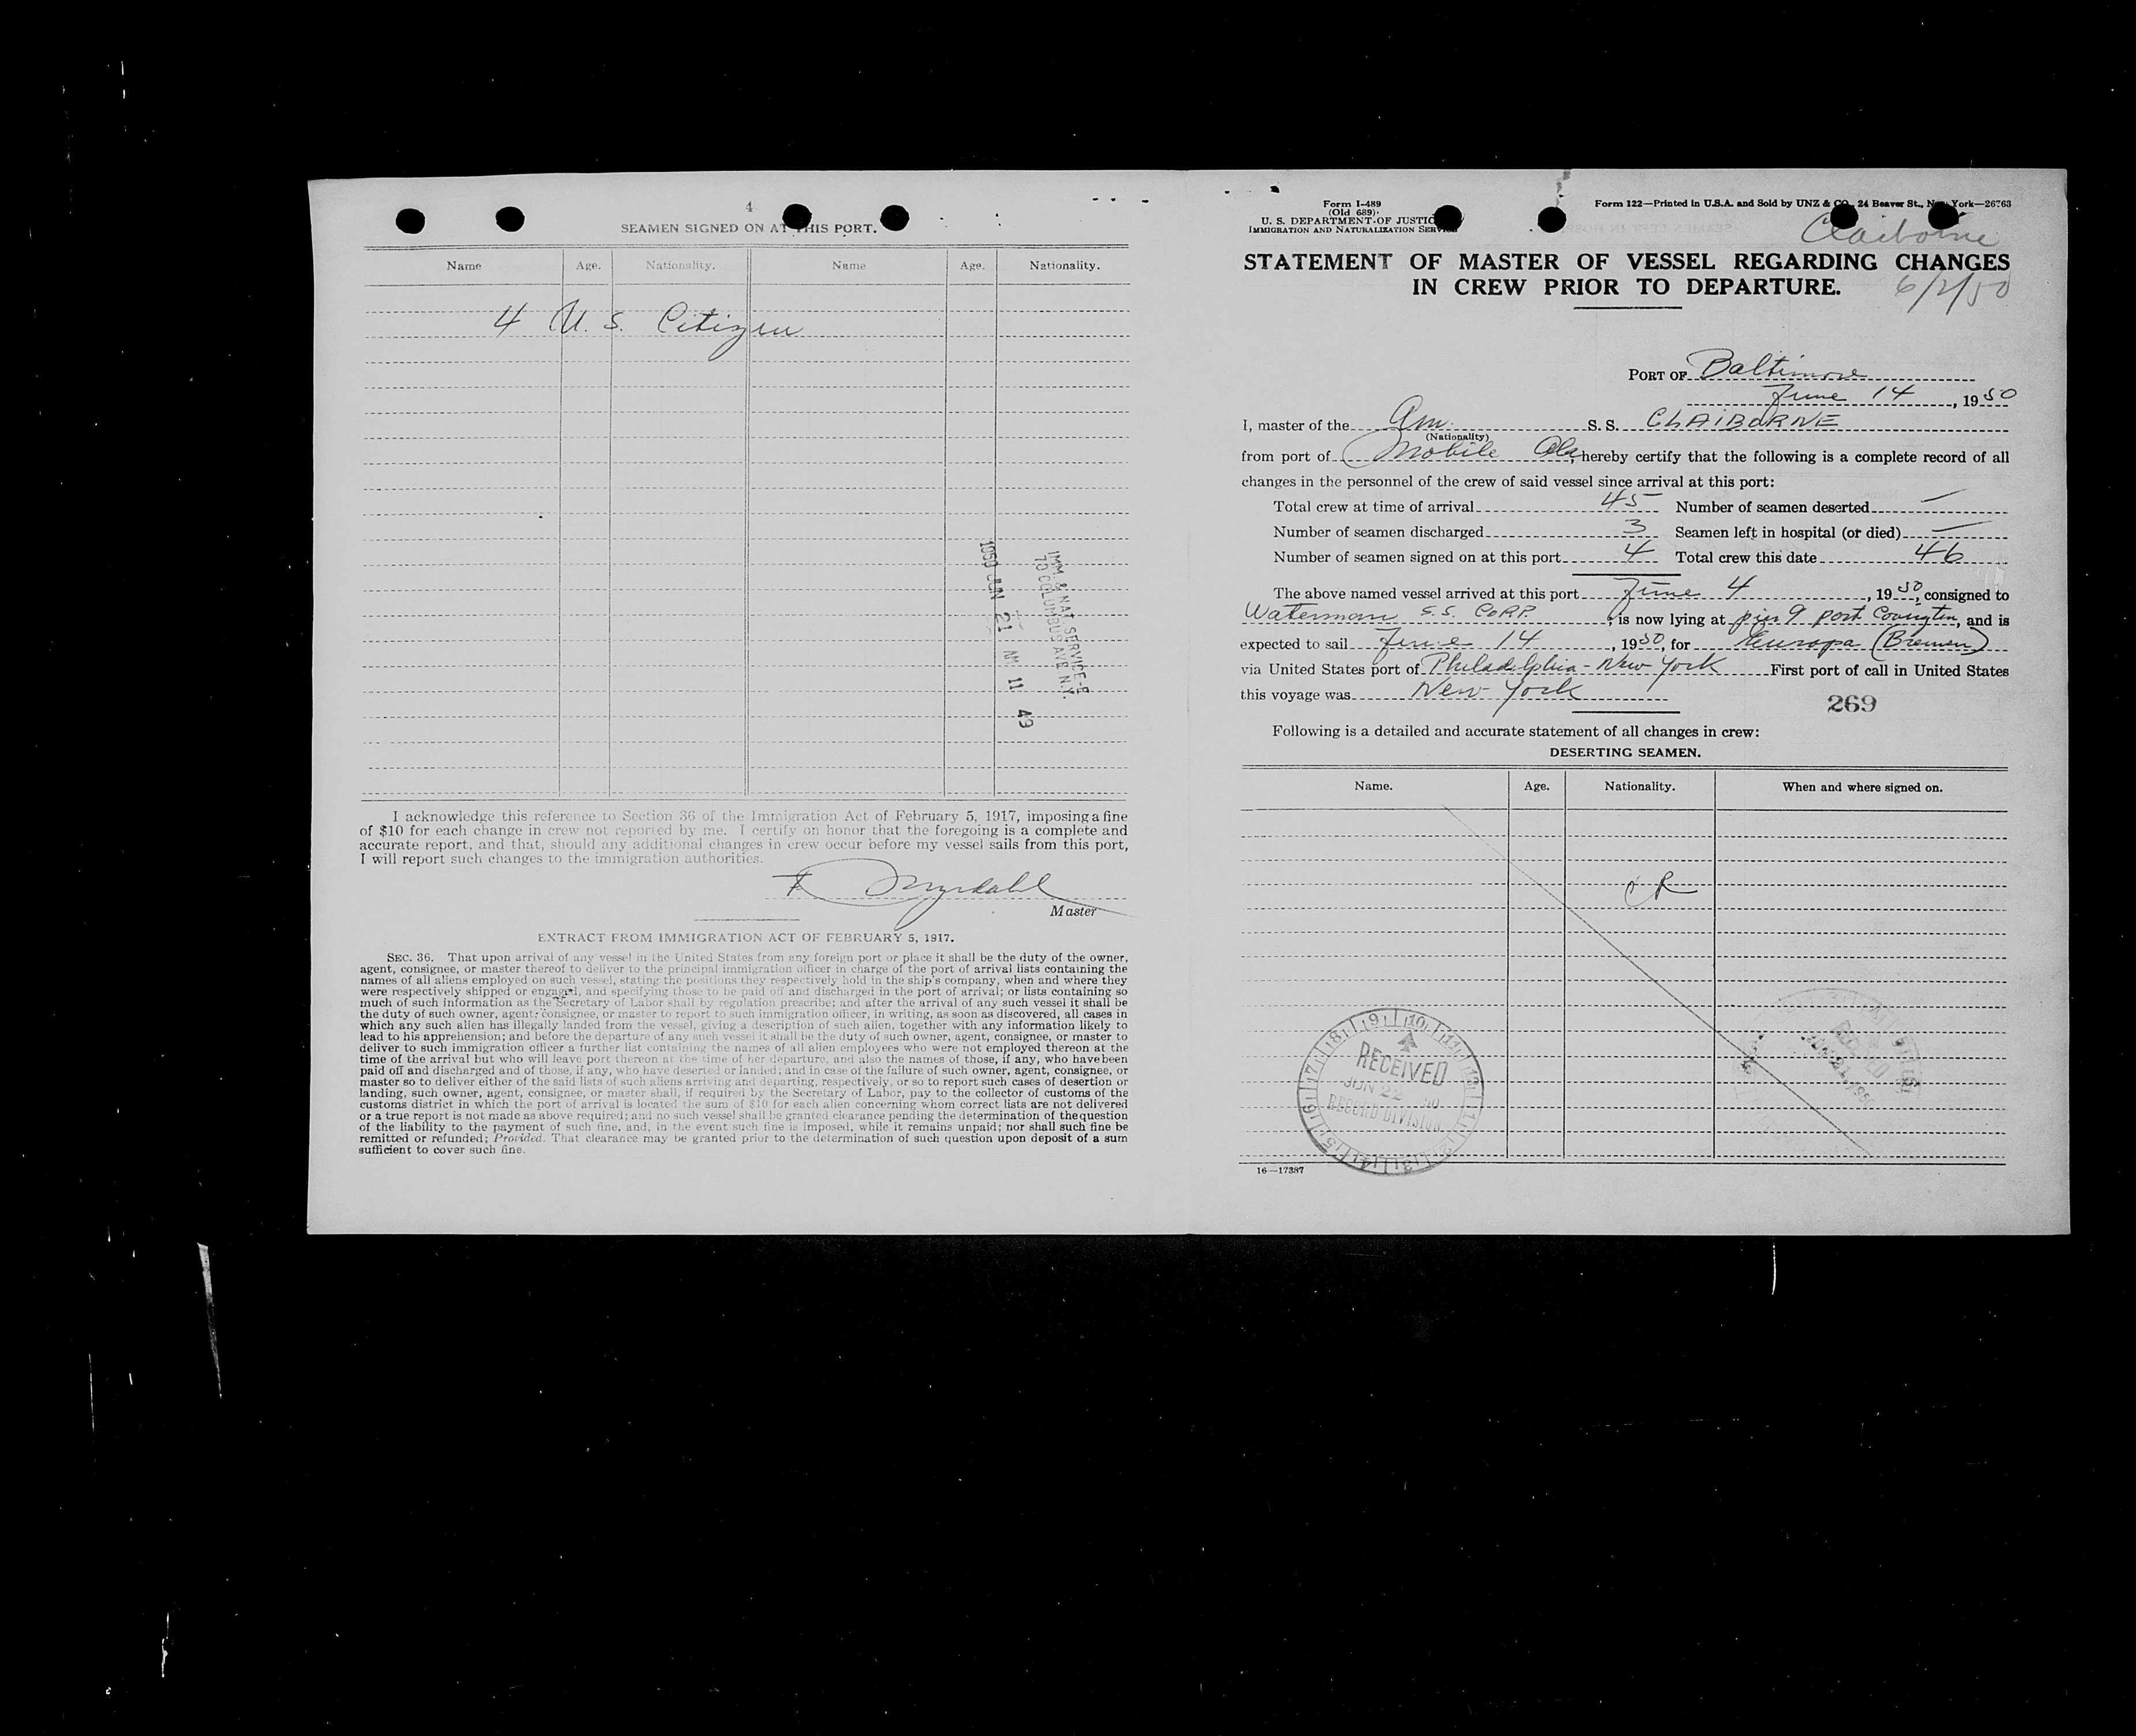 4
SEAMEN SIGNED ON AT THIS PORT.
Name Age. Nationality. Name Age. Nationality.
4 U. S. Citizen
IMM. & NAT. SERVICE-
70 COLUMBUS AVE N.Y.
1950 JUN 21 AM 11 49
I acknowledge this reference to Section 36 of the Immigration Act of February 5, 1917, imposing a fine
of $10 for each change in crew not reported by me. I certify on honor that the foregoing is a complete and
accurate report, and that, should any additional changes in crew occur before my vessel sails from this port,
I will report such changes to the immigration authorities.
Master
EXTRACT FROM IMMIGRATION ACT OF FEBRUARY 5, 1917.
SEC. 36. That upon arrival of any vessel in the United States from any foreign port or place it shall be the duty of the owner,
agent, consignee, or master thereof to deliver to the principal immigration officer in charge of the port of arrival lists containing the
names of all aliens employed on such vessel, stating the positions they respectively hold in the ship's company, when and where they
were respectively shipped or engaged, and specifying those to be paid off and discharged in the port of arrival; or lists containing so
much of such information as the Secretary of Labor shall by regulation prescribe; and after the arrival of any such vessel it shall be
the duty of such owner, agent, consignee, or master to report to such immigration officer, in writing, as soon as discovered, all cases in
which any such alien has illegally landed from the vessel, giving a description of such alien, together with any information likely to
lead to his apprehension; and before the departure of any such vessel it shall be the duty of such owner, agent, consignee, or master to
deliver to such immigration officer a further list containing the names of all alien employees who were not employed thereon at the
time of the arrival but who will leave port thereon at the time of her departure, and also the names of those, if any, who have been
paid off and discharged and of those, if any, who have deserted or landed; and in case of the failure of such owner, agent, consignee, or
master so to deliver either of the said lists of such aliens arriving and departing, respectively, or so to report such cases of desertion or
landing, such owner, agent, consignee, or master shall, if required by the Secretary of Labor, pay to the collector of customs of the
customs district in which the port of arrival is located the sum of $10 for each alien concerning whom correct lists are not delivered
or a true report is not made as above required; and no such vessel shall be granted clearance pending the determination of the question
of the liability to the payment of such fine, and, in the event such fine is imposed, while it remains unpaid; nor shall such fine be
remitted or refunded; Provided. That clearance may be granted prior to the determination of such question upon deposit of a sum
sufficient to cover such fine.
Form I-489
(Old 689)
U. S. DEPARTMENT OF JUSTIC
IMMIGRATION AND NATURALIZATION SERV
Form 122—Printed in U.S.A. and Sold by UNZ & CO., 24 Beaver St., New York—26763
Claiborne
STATEMENT OF MASTER OF VESSEL REGARDING CHANGES
IN CREW PRIOR TO DEPARTURE.
6/2/50
PORT OF Baltimore
June 14, 1950
I, master of the Am. S. S. CLAIBORNE
(Nationality)
from port of Mobile Ala, hereby certify that the following is a complete record of all
changes in the personnel of the crew of said vessel since arrival at this port:
Total crew at time of arrival 45 Number of seamen deserted —
Number of seamen discharged 3 Seamen left in hospital (or died) —
Number of seamen signed on at this port 4 Total crew this date 46
The above named vessel arrived at this port June 4, 1950, consigned to
Waterman S.S. CORP., is now lying at pier 9 port Covington, and is
expected to sail June 14, 1950, for Europa (Bremen)
via United States port of Philadelphia - New York First port of call in United States
this voyage was New York
269
Following is a detailed and accurate statement of all changes in crew:
DESERTING SEAMEN.
Name. Age. Nationality. When and where signed on.
RECEIVED
JUN 22 50
RECORD DIVISION
16—17387